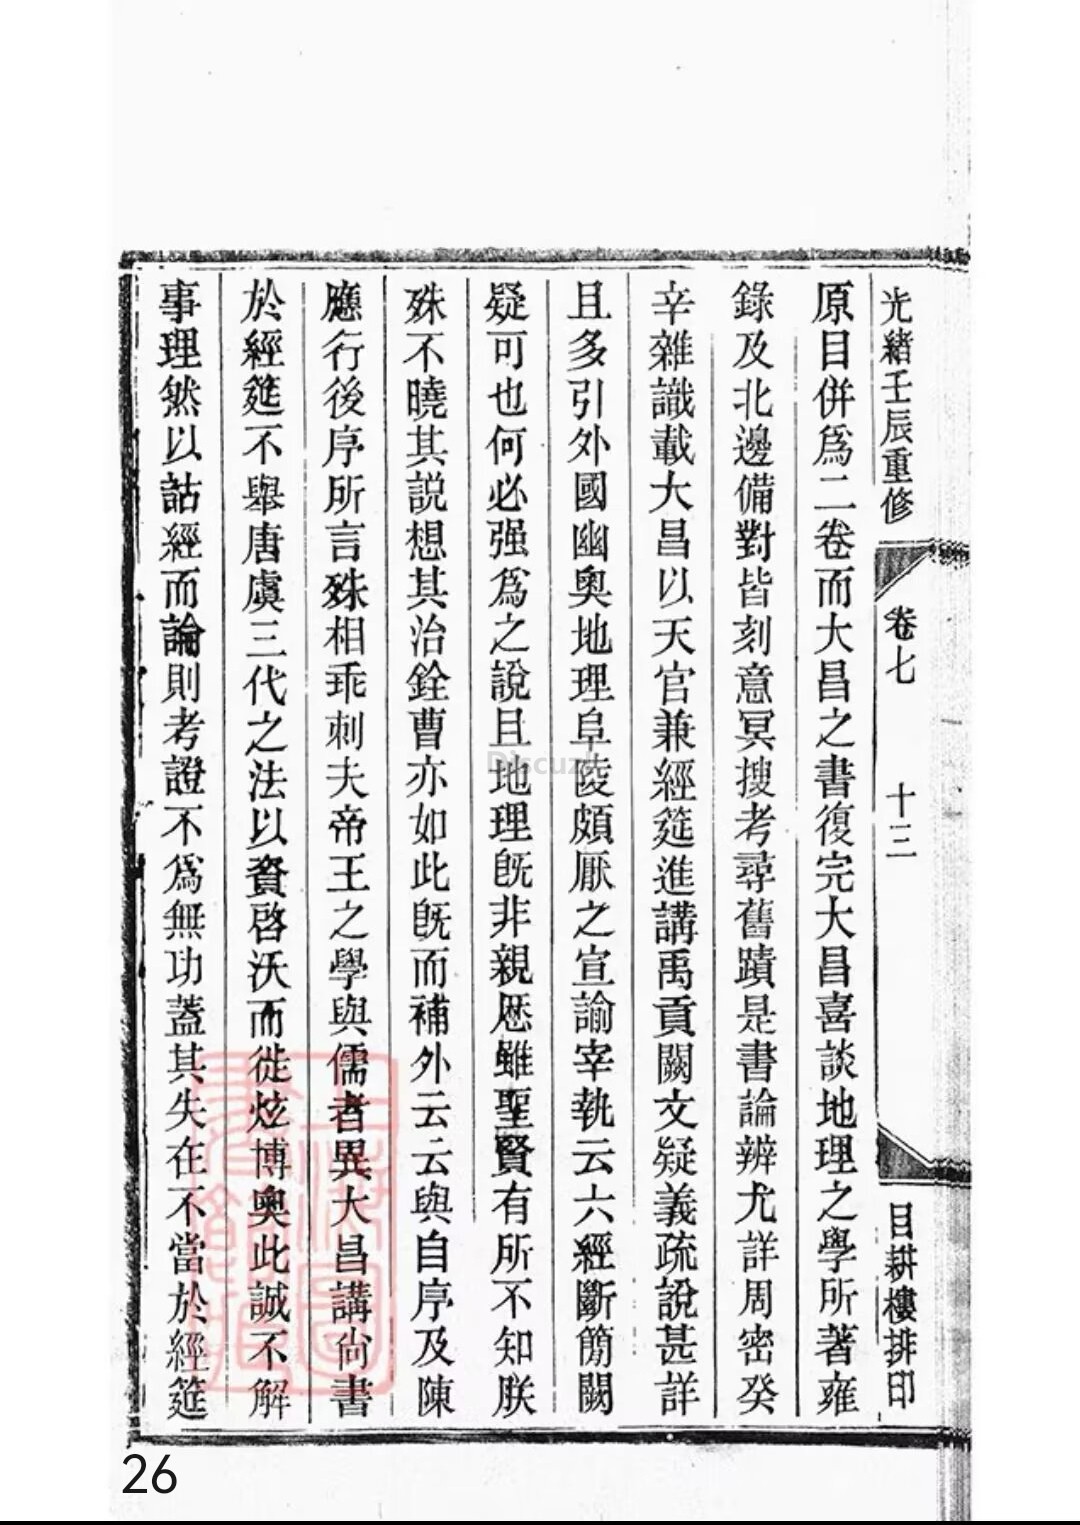 光緖壬辰重修
卷七
十三
目耕樓排印
原目併爲二卷而大昌之書復完大昌喜談地理之學所著雍
錄及北邊備對皆刻意冥搜考尋舊蹟是書論辨尤詳周密癸
辛雜識載大昌以天官兼經筵進講禹貢闕文疑義疏說甚詳
且多引外國幽奧地理阜陵頗厭之宣諭宰執云六經斷簡闕
疑可也何必强爲之說且地理旣非親歷雖聖賢有所不知朕
殊不曉其說想其治銓曹亦如此旣而補外云云與自序及陳
應行後序所言殊相乖刺夫帝王之學與儒者異大昌講尙書
於經筵不舉唐虞三代之法以資啓沃而徙炫博奧此誠不解
事理然以詁經而論則考證不爲無功蓋其失在不當於經筵
Discuz!
26